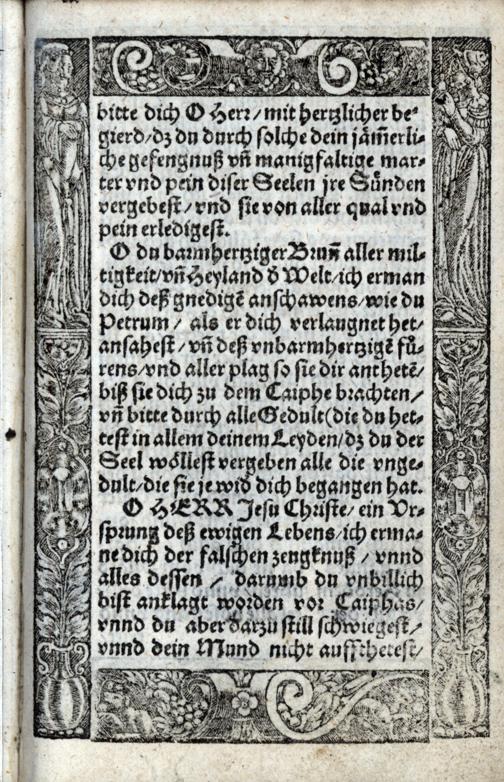 bitte dich O Herr/ mit hertzlicher be⸗
gierd/ dz du durch solche dein jäm̃erli⸗
che gefengnuß vñ manigfaltige mar⸗
ter vnd pein diser Seelen jre Sünden
vergebest/ vnd sie von aller qual vnd
pein erledigest.
O du barmhertziger Bruñ aller mil⸗
tigkeit/ vñ Heyland d̕ Welt/ ich erman
dich deß gnedigẽ anschawens/ wie du
Petrum/ als er dich verlaugnet het/
ansahest/ vñ deß vnbarmhertzigẽ fü⸗
rens/ vnd aller plag so sie dir anthetẽ/
biß sie dich zu dem Caiphe brachten/
vñ bitte durch alle Gedult (die du het⸗
test in allem deinem Leyden/ dz du der
Seel wöllest vergeben alle die vnge⸗
dult/ die sie je wid̕ dich begangen hat.
O HERR Jesu Christe/ ein Vr⸗
sprung deß ewigen Lebens/ ich erma⸗
ne dich der falschen zeugknuß/ vnnd
alles dessen/ darumb du vnbillich
bist anklagt worden vor Caiphas/
vnnd du aber darzu still schwiegest/
vnnd dein Mund nicht auffthetest/